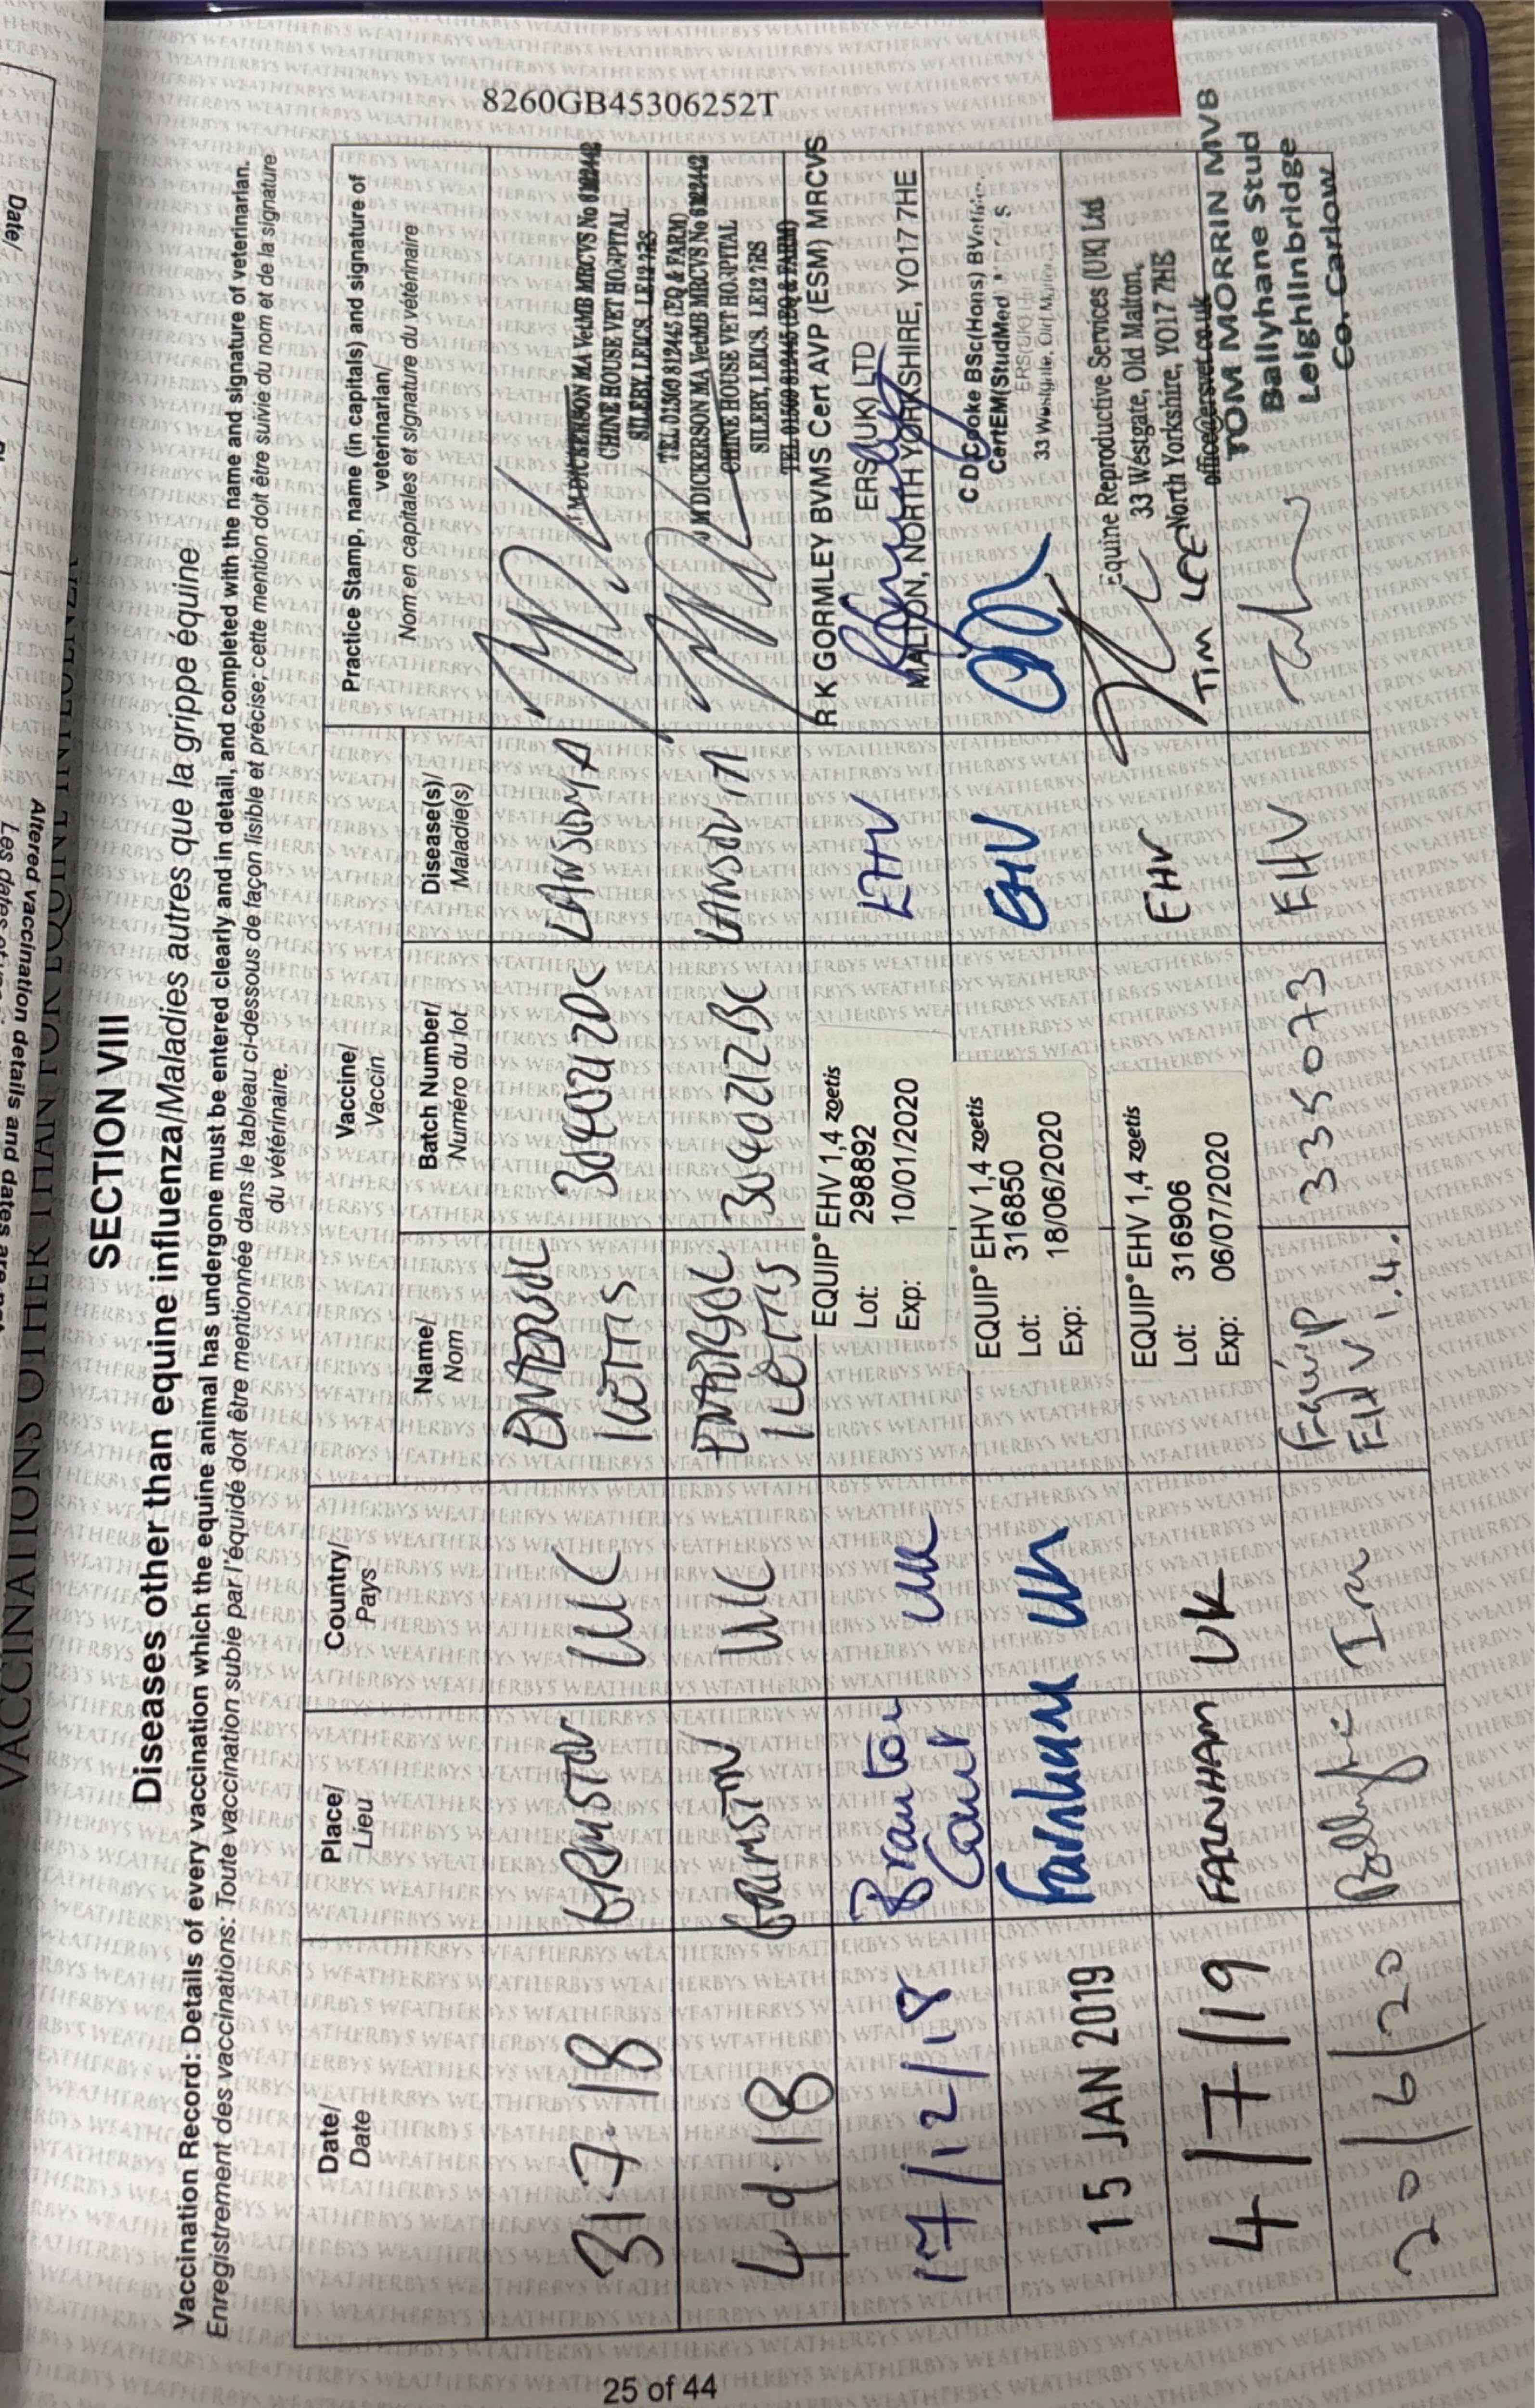 Date/
Altered vaccination details and dates are not
VACCINATIONS OTHER THAN EQUINE INFLUENZA
SECTION VIII
Diseases other than equine influenza/Maladies autres que la grippe équine
Vaccination Record: Details of every vaccination which the equine animal has undergone must be entered clearly and in detail, and completed with the name and signature of veterinarian.
Enregistrement des vaccinations: Toute vaccination subie par l'équidé doit être mentionnée dans le tableau ci-dessous de façon lisible et précise; cette mention doit être suivie du nom et de la signature
du vétérinaire.
Date/
Date
Place/
Lieu
Country/
Pays
Vaccine/
Vaccin
Name/
Nom
Batch Number/
Numéro du lot
Disease(s)/
Maladie(s)
Practice Stamp, name (in capitals) and signature of
veterinarian/
Nom en capitales et signature du vétérinaire
31-7-18
UK
J M DICKERSON MA VetMB MRCVS No 6122442
CHINE HOUSE VET HOSPITAL
SILEBY, LEICS. LE12 7RS
TEL 01509 812445 (EQ & FARM)
4.9.18
UK
J M DICKERSON MA VetMB MRCVS No 6122442
CHINE HOUSE VET HOSPITAL
SILEBY, LEICS. LE12 7RS
TEL 01509 812445 (EQ & FARM)
17/12/18
Branton
Court
UK
EQUIP® EHV 1,4 zoetis
Lot: 298892
Exp: 10/01/2020
EHV
R K GORMLEY BVMS Cert AVP (ESM) MRCVS
ERS(UK) LTD
MALTON, NORTH YORKSHIRE, YO17 7HE
15 JAN 2019
Farnham
UK
EQUIP® EHV 1,4 zoetis
Lot: 316850
Exp: 18/06/2020
EHV
C D Cooke BSc(Hons)
CertEM(StudMed)
ERS(UK)
33 Westgate, Old
4/7/19
FARNHAM
UK
EQUIP® EHV 1,4 zoetis
Lot: 316906
Exp: 06/07/2020
EHV
Equine Reproductive Services (UK) Ltd
33 Westgate, Old Malton,
North Yorkshire, YO17 7HE
office@ersvet.co.uk
TIM LEE
20/6/20
Equip
EHV 1.4.
335073
EHV
TOM MORRIN MVB
Ballyhane Stud
Leighlinbridge
Co. Carlow
8260GB45306252T
25 of 44